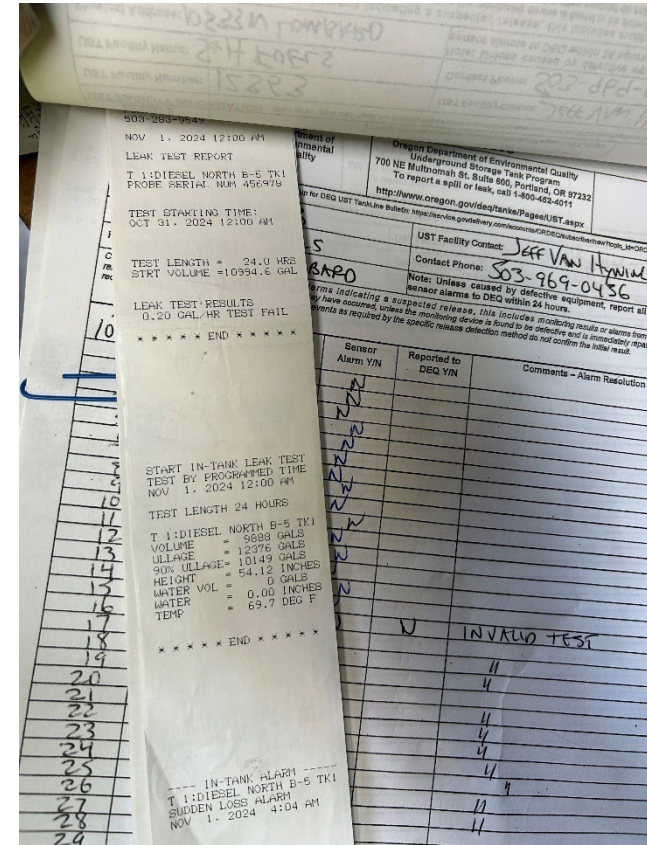 UST Facility Name: S+H FUELS
UST Facility Number: 12363
503-283-9549
NOV 1, 2024 12:00 AM
LEAK TEST REPORT
T 1:DIESEL NORTH B-5 TK1
PROBE SERIAL NUM 456979
TEST STARTING TIME:
OCT 31, 2024 12:00 AM
TEST LENGTH = 24.0 HRS
STRT VOLUME =10994.6 GAL
LEAK TEST RESULTS
0.20 GAL/HR TEST FAIL
* * * * * END * * * * *
START IN-TANK LEAK TEST
TEST BY PROGRAMMED TIME
NOV 1, 2024 12:00 AM
TEST LENGTH 24 HOURS
T 1:DIESEL NORTH B-5 TK1
VOLUME = 9888 GALS
ULLAGE = 12376 GALS
90% ULLAGE= 10149 GALS
HEIGHT = 54.12 INCHES
WATER VOL = 0 GALS
WATER = 0.00 INCHES
TEMP = 69.7 DEG F
* * * * * END * * * * *
---- IN-TANK ALARM -----
T 1:DIESEL NORTH B-5 TK1
SUDDEN LOSS ALARM
NOV 1, 2024 4:04 AM
Oregon Department of Environmental Quality
Underground Storage Tank Program
700 NE Multnomah St. Suite 600, Portland, OR 97232
To report a spill or leak, call 1-800-452-4011
http://www.oregon.gov/deq/tanks/Pages/UST.aspx
UST Facility Contact: JEFF VAN
Contact Phone: 503-969-0456
Note: Unless caused by defective equipment, report all
sensor alarms to DEQ within 24 hours.
Sensor Alarm Y/N
Reported to DEQ Y/N
Comments – Alarm Resolution
10
11
12
13
14
15
16
17
18 N INVALID TEST
19
20 "
21 "
22
23 "
24 "
25 "
26 "
27 "
28 "
29